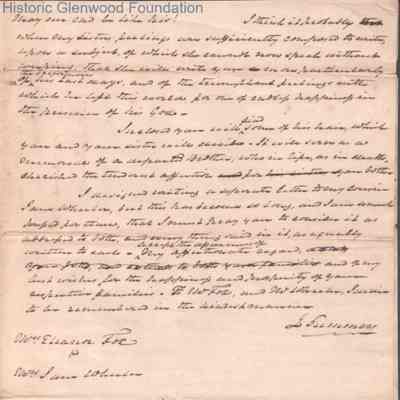 Historic Glenwood Foundation
May our end be like his! I think it probably that
when my sister's feelings are sufficiently composed to write
upon a subject, of which she cannot now speak without
weeping, that she will write you
of his last days, and of the triumphant feelings with
which he left this world for one of endless happiness in
the presence of his God.
Inclosed you will find some of his hair, which
you and your sister will divide. It will serve as a
memorial of a departed brother, who in life, as in death,
cherished the tenderest affection for you both.
I designed writing a separate letter to my cousin
Jane Wheeler, but this has become so long, and I am so much
for time, that I must beg you to consider it as
addressed to both, and every thing said in it, as equally
written to each. My affectionate regard,
accept the assurance of
and my
best wishes for the happiness and prosperity of your
respective families. To Mr Fox, and Mr Wheeler, I wish
to be remembered in the kindest manner
J. Summers
Mrs Eleanor Fox
&
Mrs Jane Wheeler